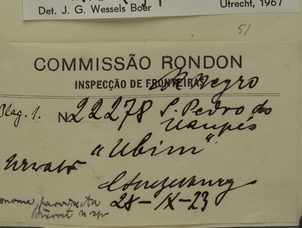 Det. J. G. Wessels Boer
Utrecht, 1967
51
COMMISSÃO RONDON
INSPECÇÃO DE FRONTEIRAS
R. Negro
N 22278 S. Pedro do
Uaupés
"Ubim"
Luetzelburg
28-IX-23